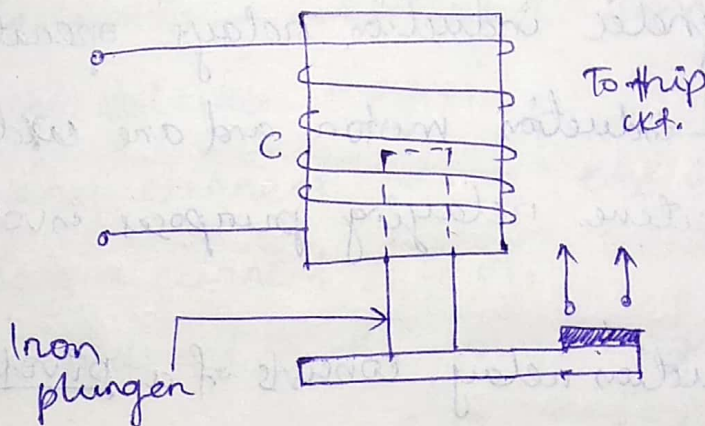 To trip
ckt.
C
Iron
plunger